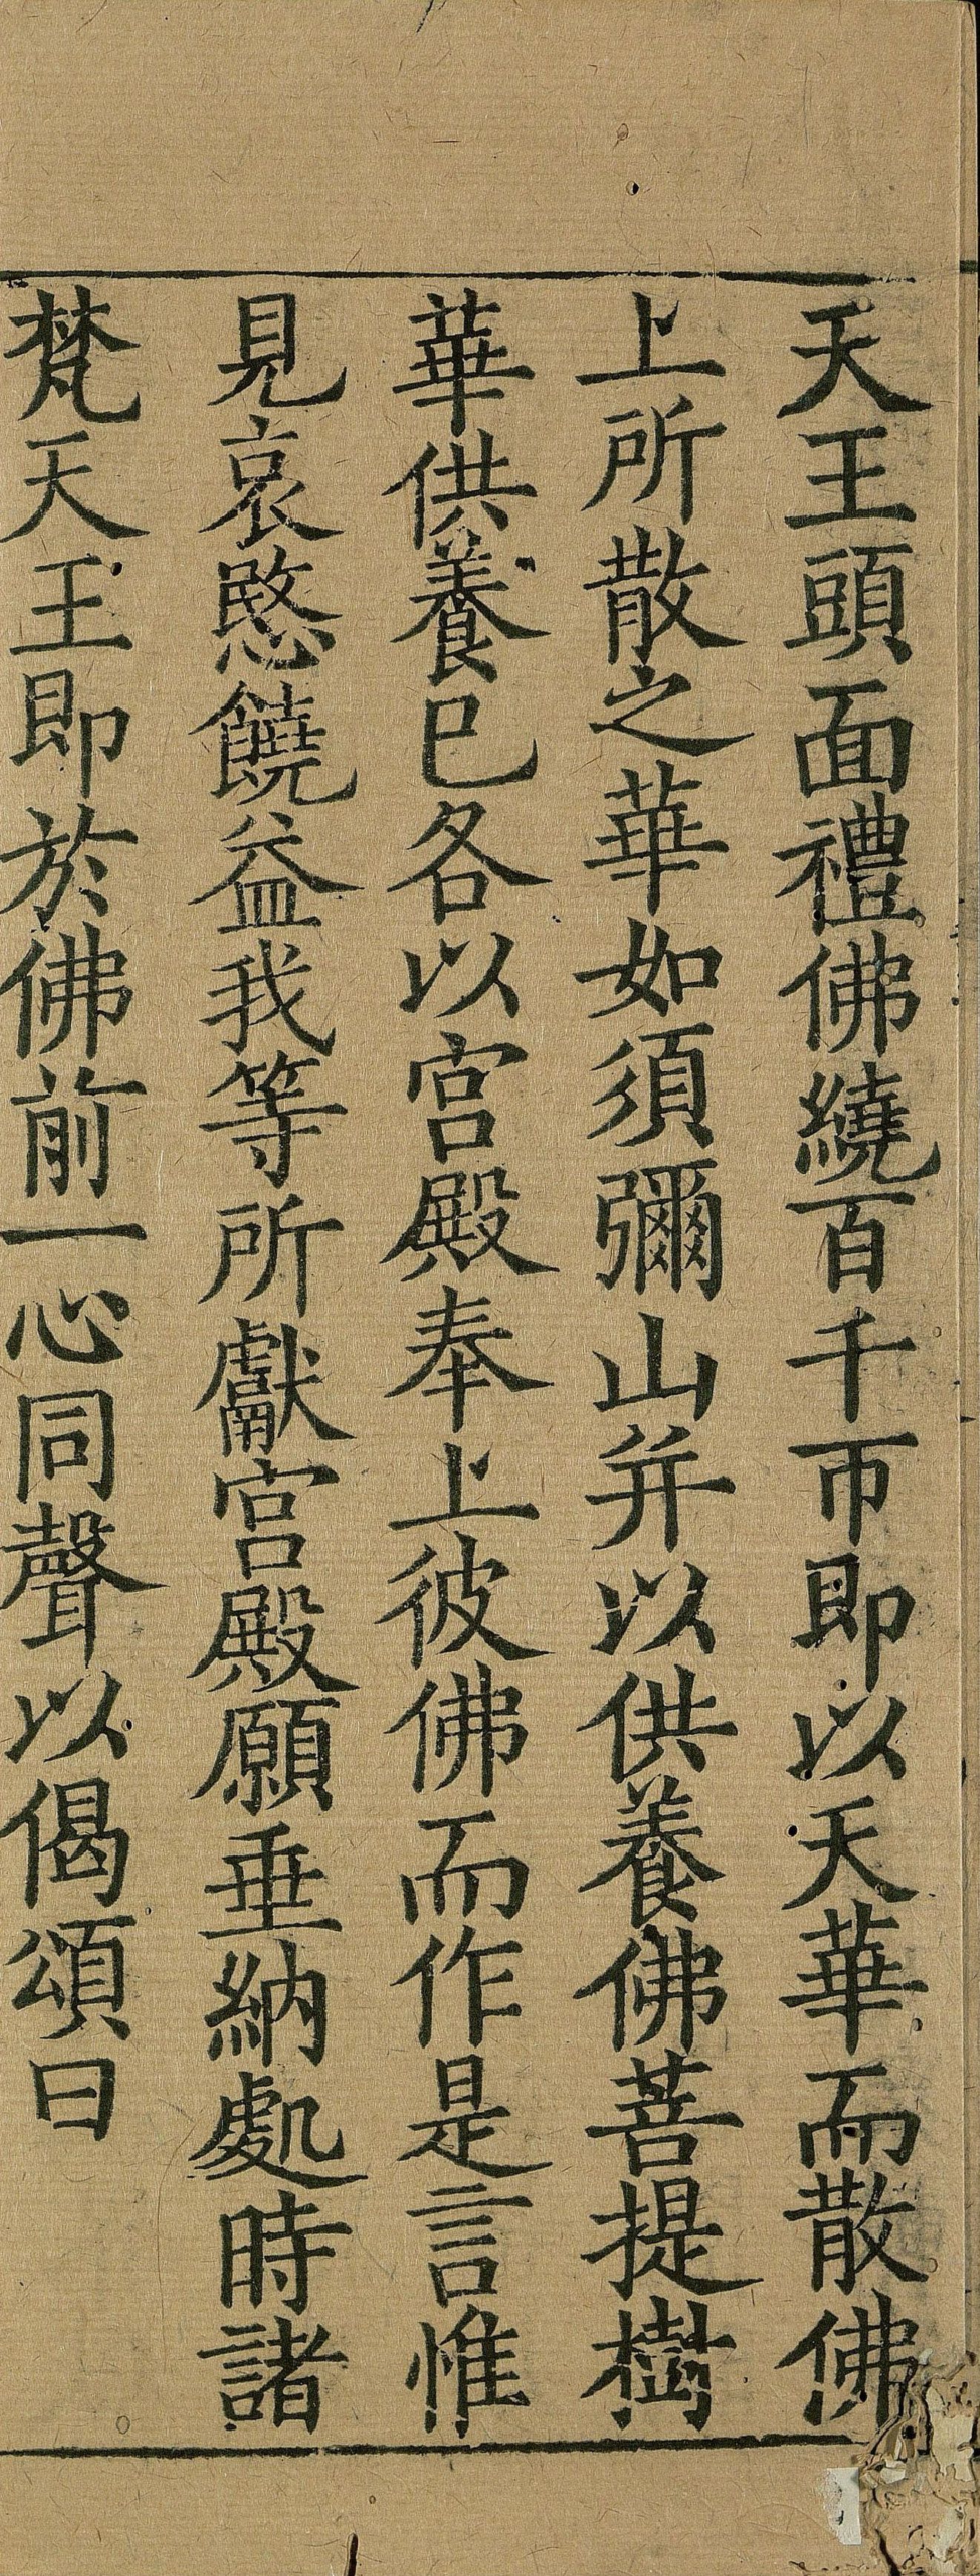 天王頭面禮佛繞百千帀即以天華而散佛
上所散之華如須彌山并以供養佛菩提樹
華供養已各以宮殿奉上彼佛而作是言惟
見哀愍饒益我等所獻宮殿願垂納處時諸
梵天王即於佛前一心同聲以偈頌曰